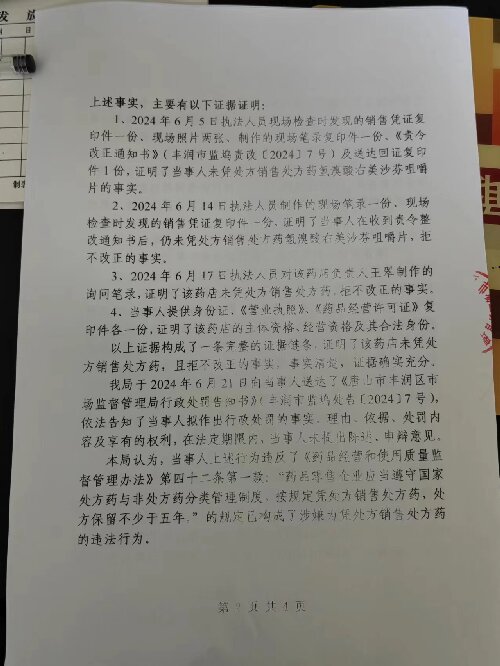 上述事实，主要有以下证据证明：
1、2024年6月5日执法人员现场检查时发现的销售凭证复
印件一份、现场照片两张、制作的现场笔录复印件一份、《责令
改正通知书》（丰润市监鸡责改〔2024〕7号）及送达回证复印
件1份，证明了当事人未凭处方销售处方药氢溴酸右美沙芬咀嚼
片的事实。
2、2024年6月14日执法人员制作的现场笔录一份、现场
检查时发现的销售凭证复印件一份、证明了当事人在收到责令整
改通知书后，仍未凭处方销售处方药氢溴酸右美沙芬咀嚼片，拒
不改正的事实。
3、2024年6月17日执法人员对该药店负责人王翠制作的
询问笔录，证明了该药店未凭处方销售处方药，拒不改正的事实。
4、当事人提供身份证、《营业执照》、《药品经营许可证》复
印件各一份，证明了该药店的主体资格、经营资格及其合法身份。
以上证据构成了一条完整的证据链条，证明了该药店未凭处
方销售处方药，且拒不改正的事实，事实清楚，证据确实充分。
我局于2024年6月21日向当事人送达了《唐山市丰润区市
场监督管理局行政处罚告知书》（丰润市监鸡处告〔2024〕7号），
依法告知了当事人拟作出行政处罚的事实、理由、依据、处罚内
容及享有的权利，在法定期限内，当事人未提出陈述、申辩意见。
本局认为，当事人上述行为违反了《药品经营和使用质量监
督管理办法》第四十二条第一款：“药品零售企业应当遵守国家
处方药与非处方药分类管理制度，按规定凭处方销售处方药，处
方保留不少于五年。”的规定已构成了涉嫌为凭处方销售处方药
的违法行为。
第2页共4页